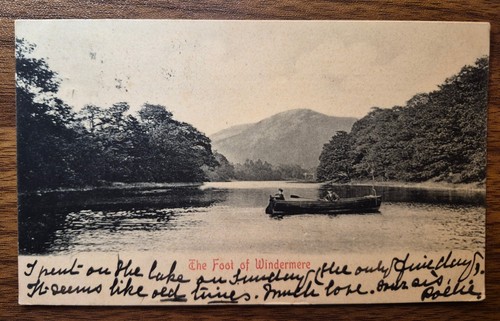 The Foot of Windermere
I went on the lake on Sunday (the only fine day).
It seems like old times. Much love. Yours,
Pollie.